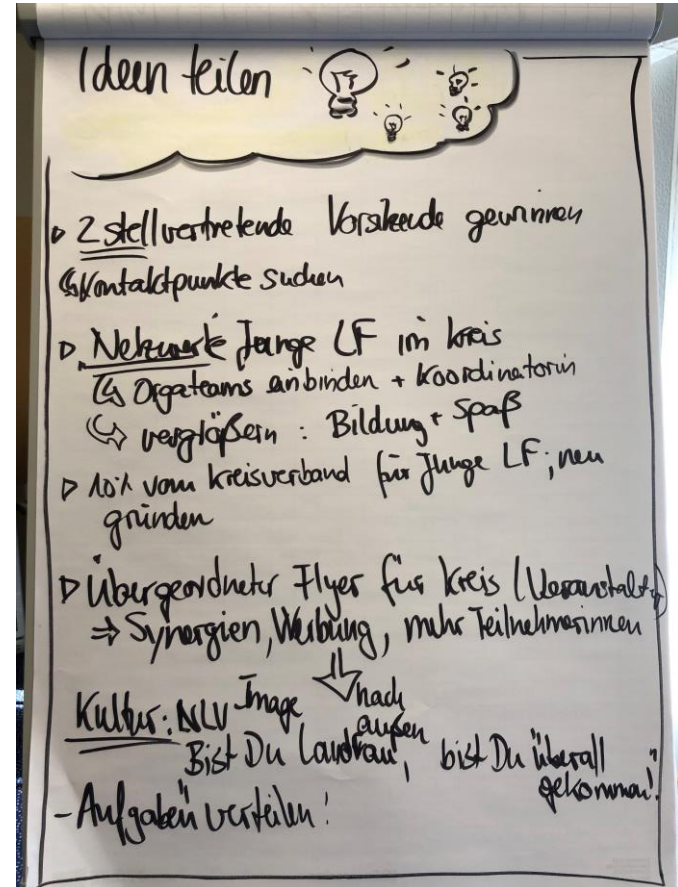 Ideen teilen
▷ 2 stellvertretende Vorsitzende gewinnen
↳ Kontaktpunkte suchen
▷ Netzwerke Junge LF im Kreis
↳ Orgateams anbinden + Koordinatorin
↳ vergrößern : Bildung + Spaß
▷ 10% vom Kreisverband für Junge LF; neu
gründen
▷ Übergeordneter Flyer für Kreis (Veranstalt.)
⇒ Synergien, Werbung, mehr Teilnehmerinnen
⇓
Kultur: NLV Image nach
außen
Bist Du Landfrau, bist Du "überall
gekommen!"
- Aufgaben verteilen!